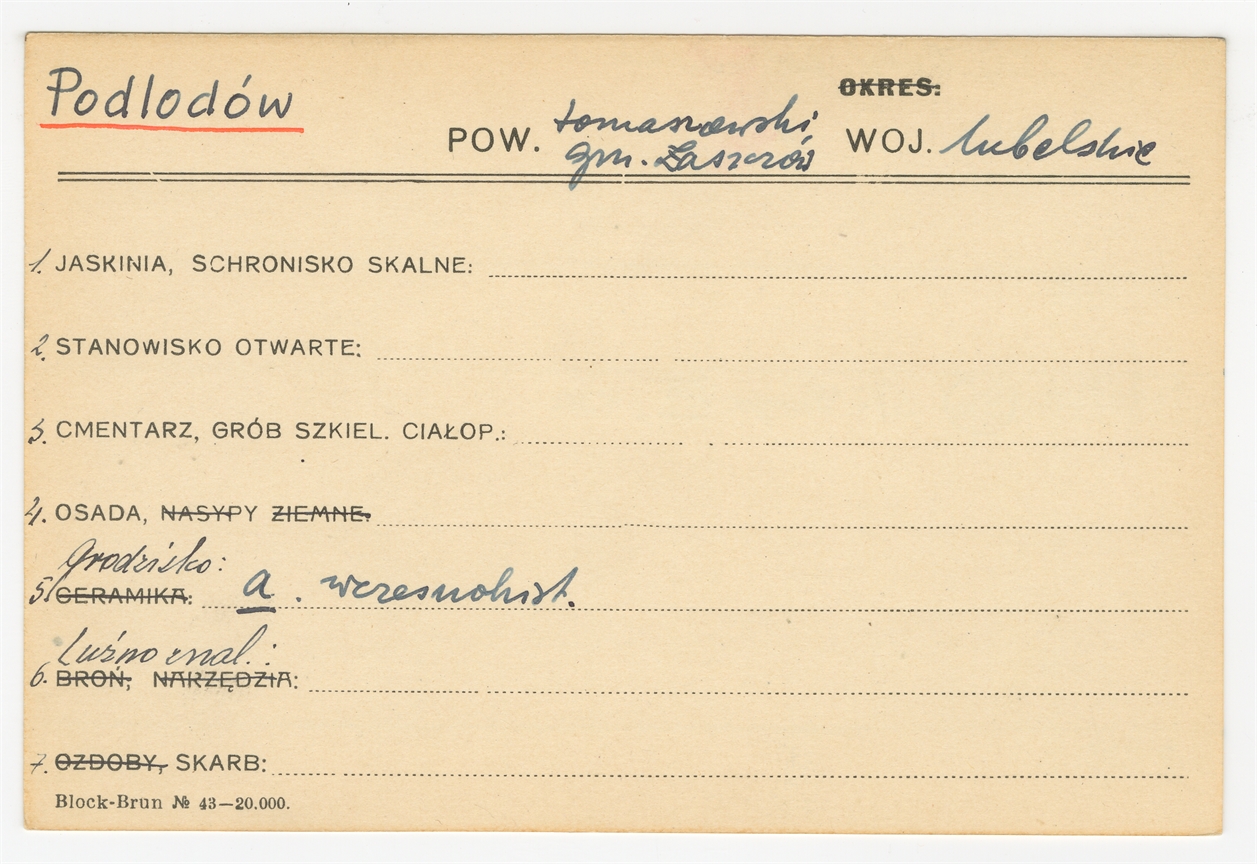 Podlodów
OKRES:
POW. tomaszowski WOJ. lubelskie
gm. Łaszczów
1. JASKINIA, SCHRONISKO SKALNE:
2. STANOWISKO OTWARTE:
3. CMENTARZ, GRÓB SZKIEL. CIAŁOP.:
4. OSADA, NASYPY ZIEMNE.
Grodzisko:
5. CERAMIKA: a. wczesnohist.
Luźno znal.:
6. BROŃ, NARZĘDZIA:
7. OZDOBY, SKARB:
Block-Brun № 43—20.000.